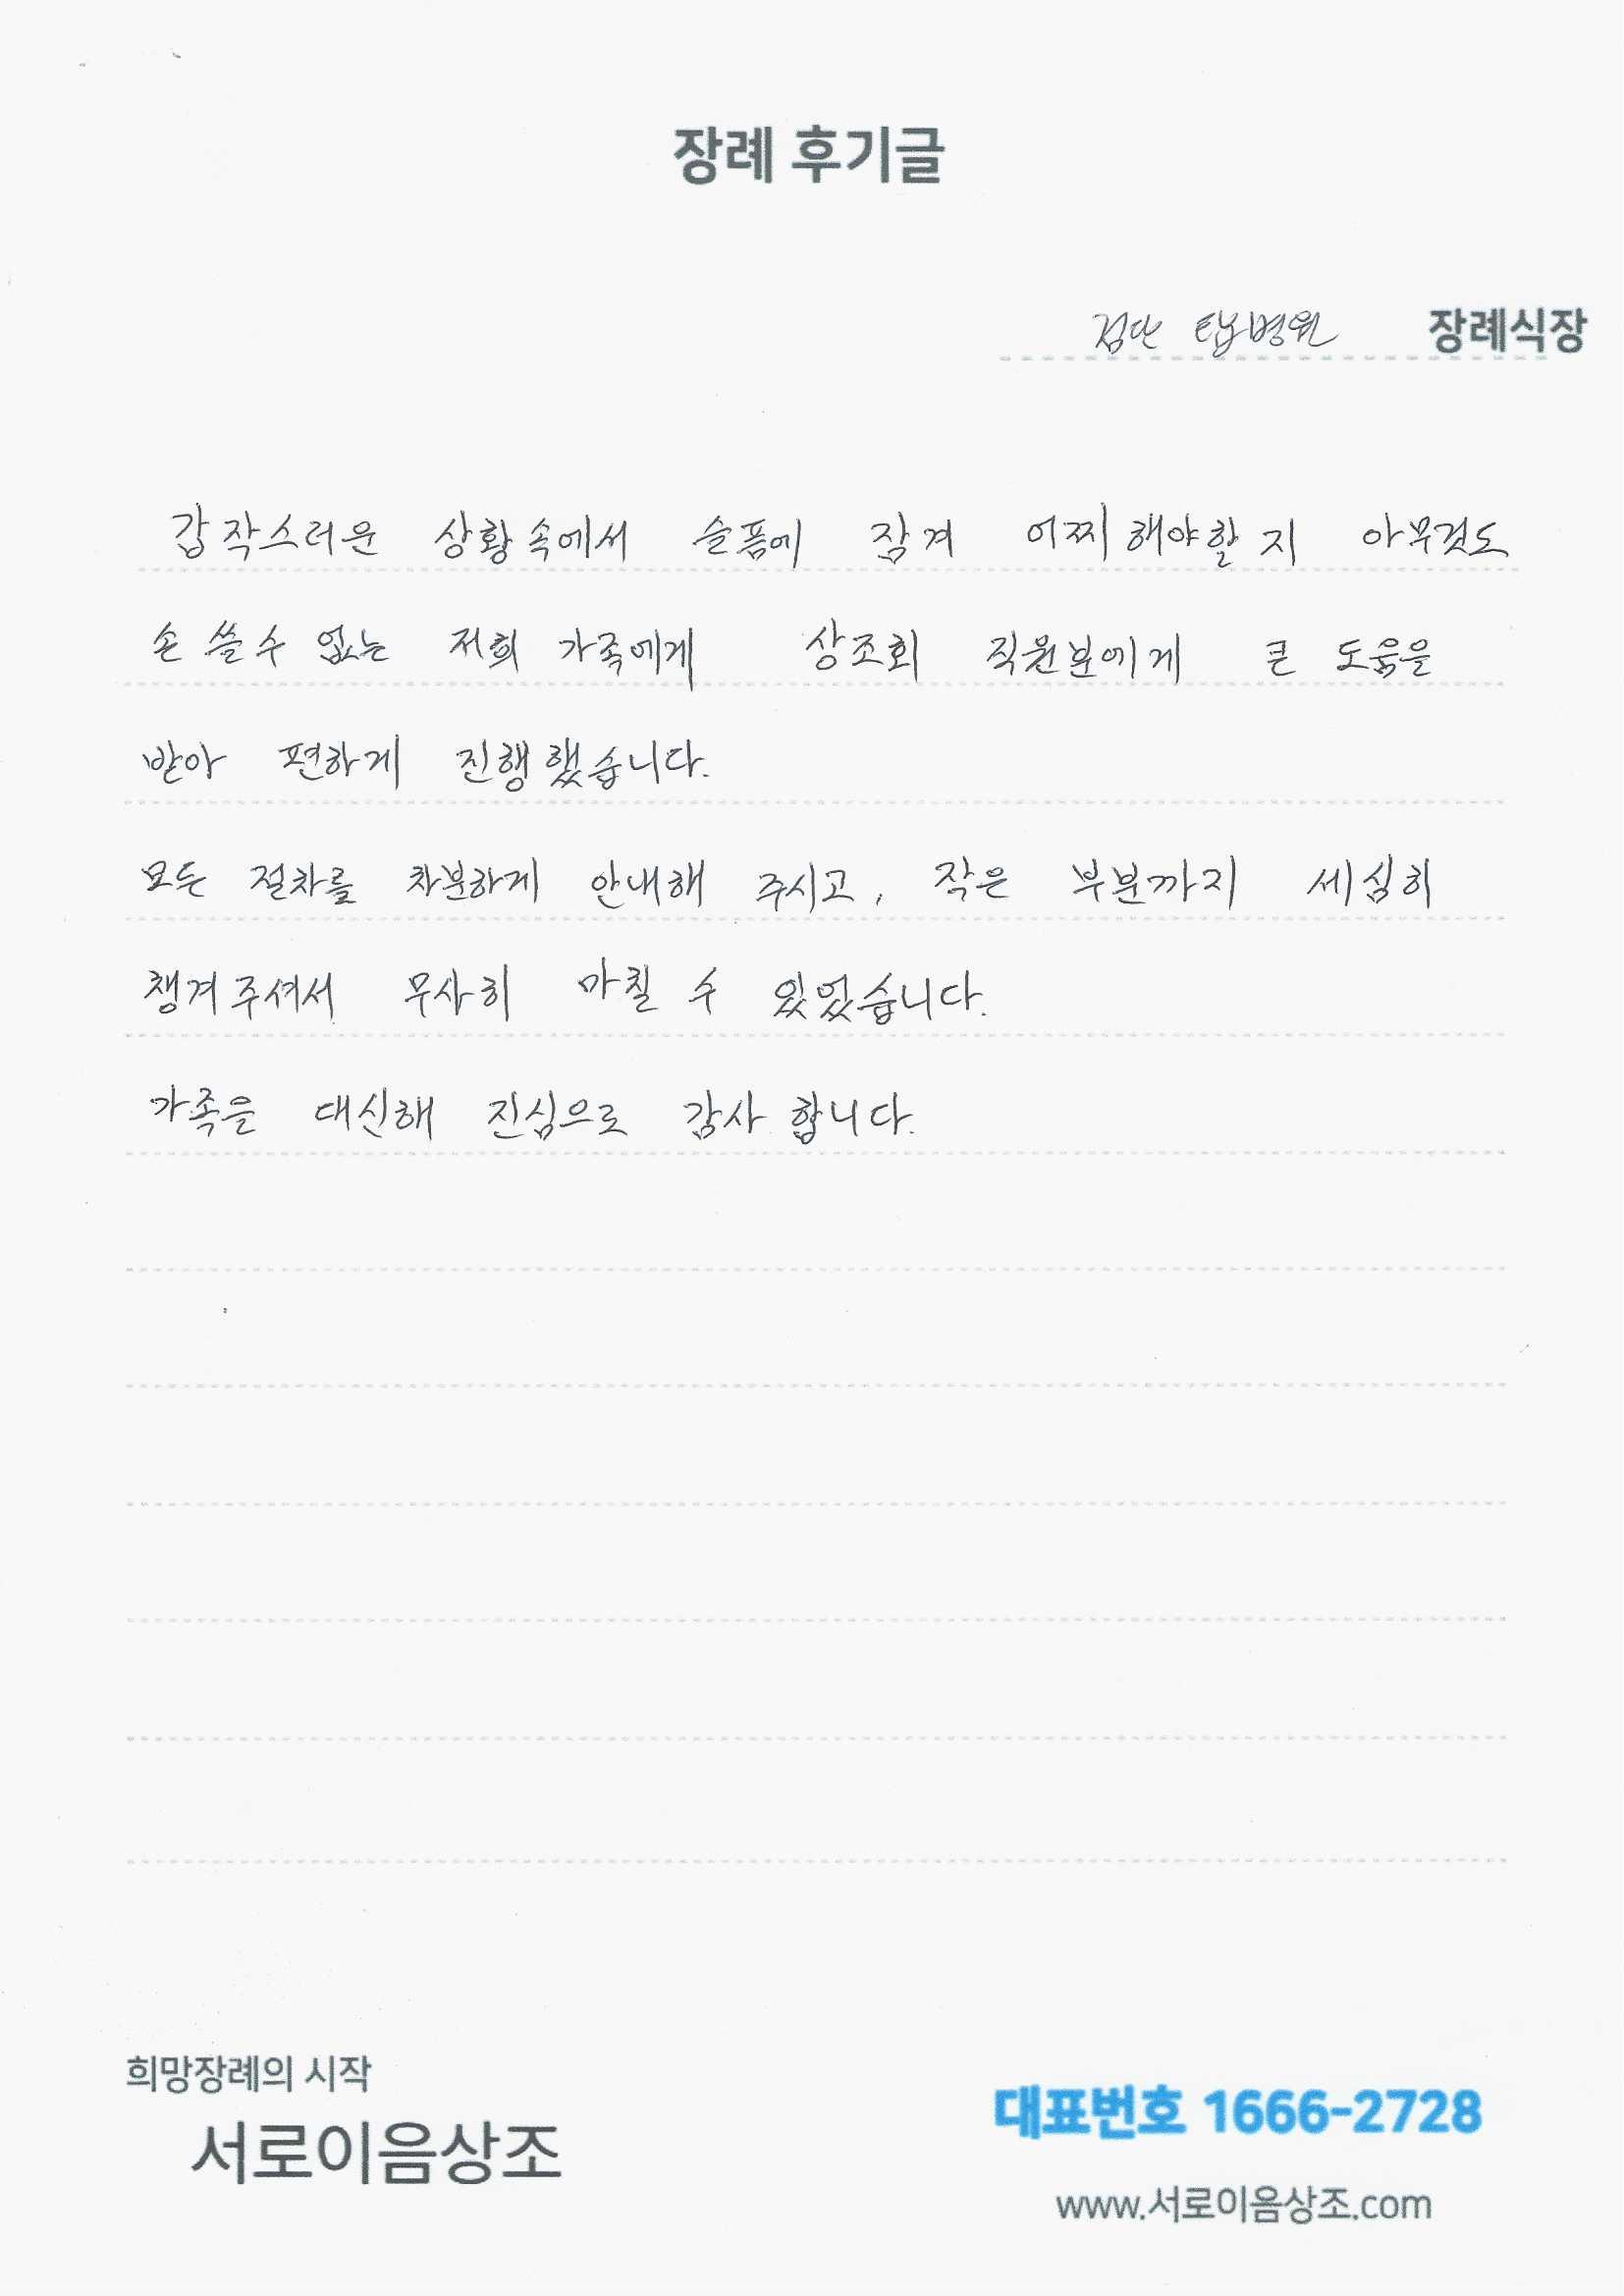 장례 후기글
검단 탑병원 장례식장
갑작스러운 상황속에서 슬픔에 잠겨 어찌해야할지 아무것도
손 쓸 수 없는 저희 가족에게 상조회 직원분에게 큰 도움을
받아 편하게 진행했습니다.
모든 절차를 차분하게 안내해 주시고, 작은 부분까지 세심히
챙겨주셔서 무사히 마칠 수 있었습니다.
가족을 대신해 진심으로 감사합니다.
희망장례의 시작
서로이음상조
대표번호 1666-2728
www.서로이음상조.com